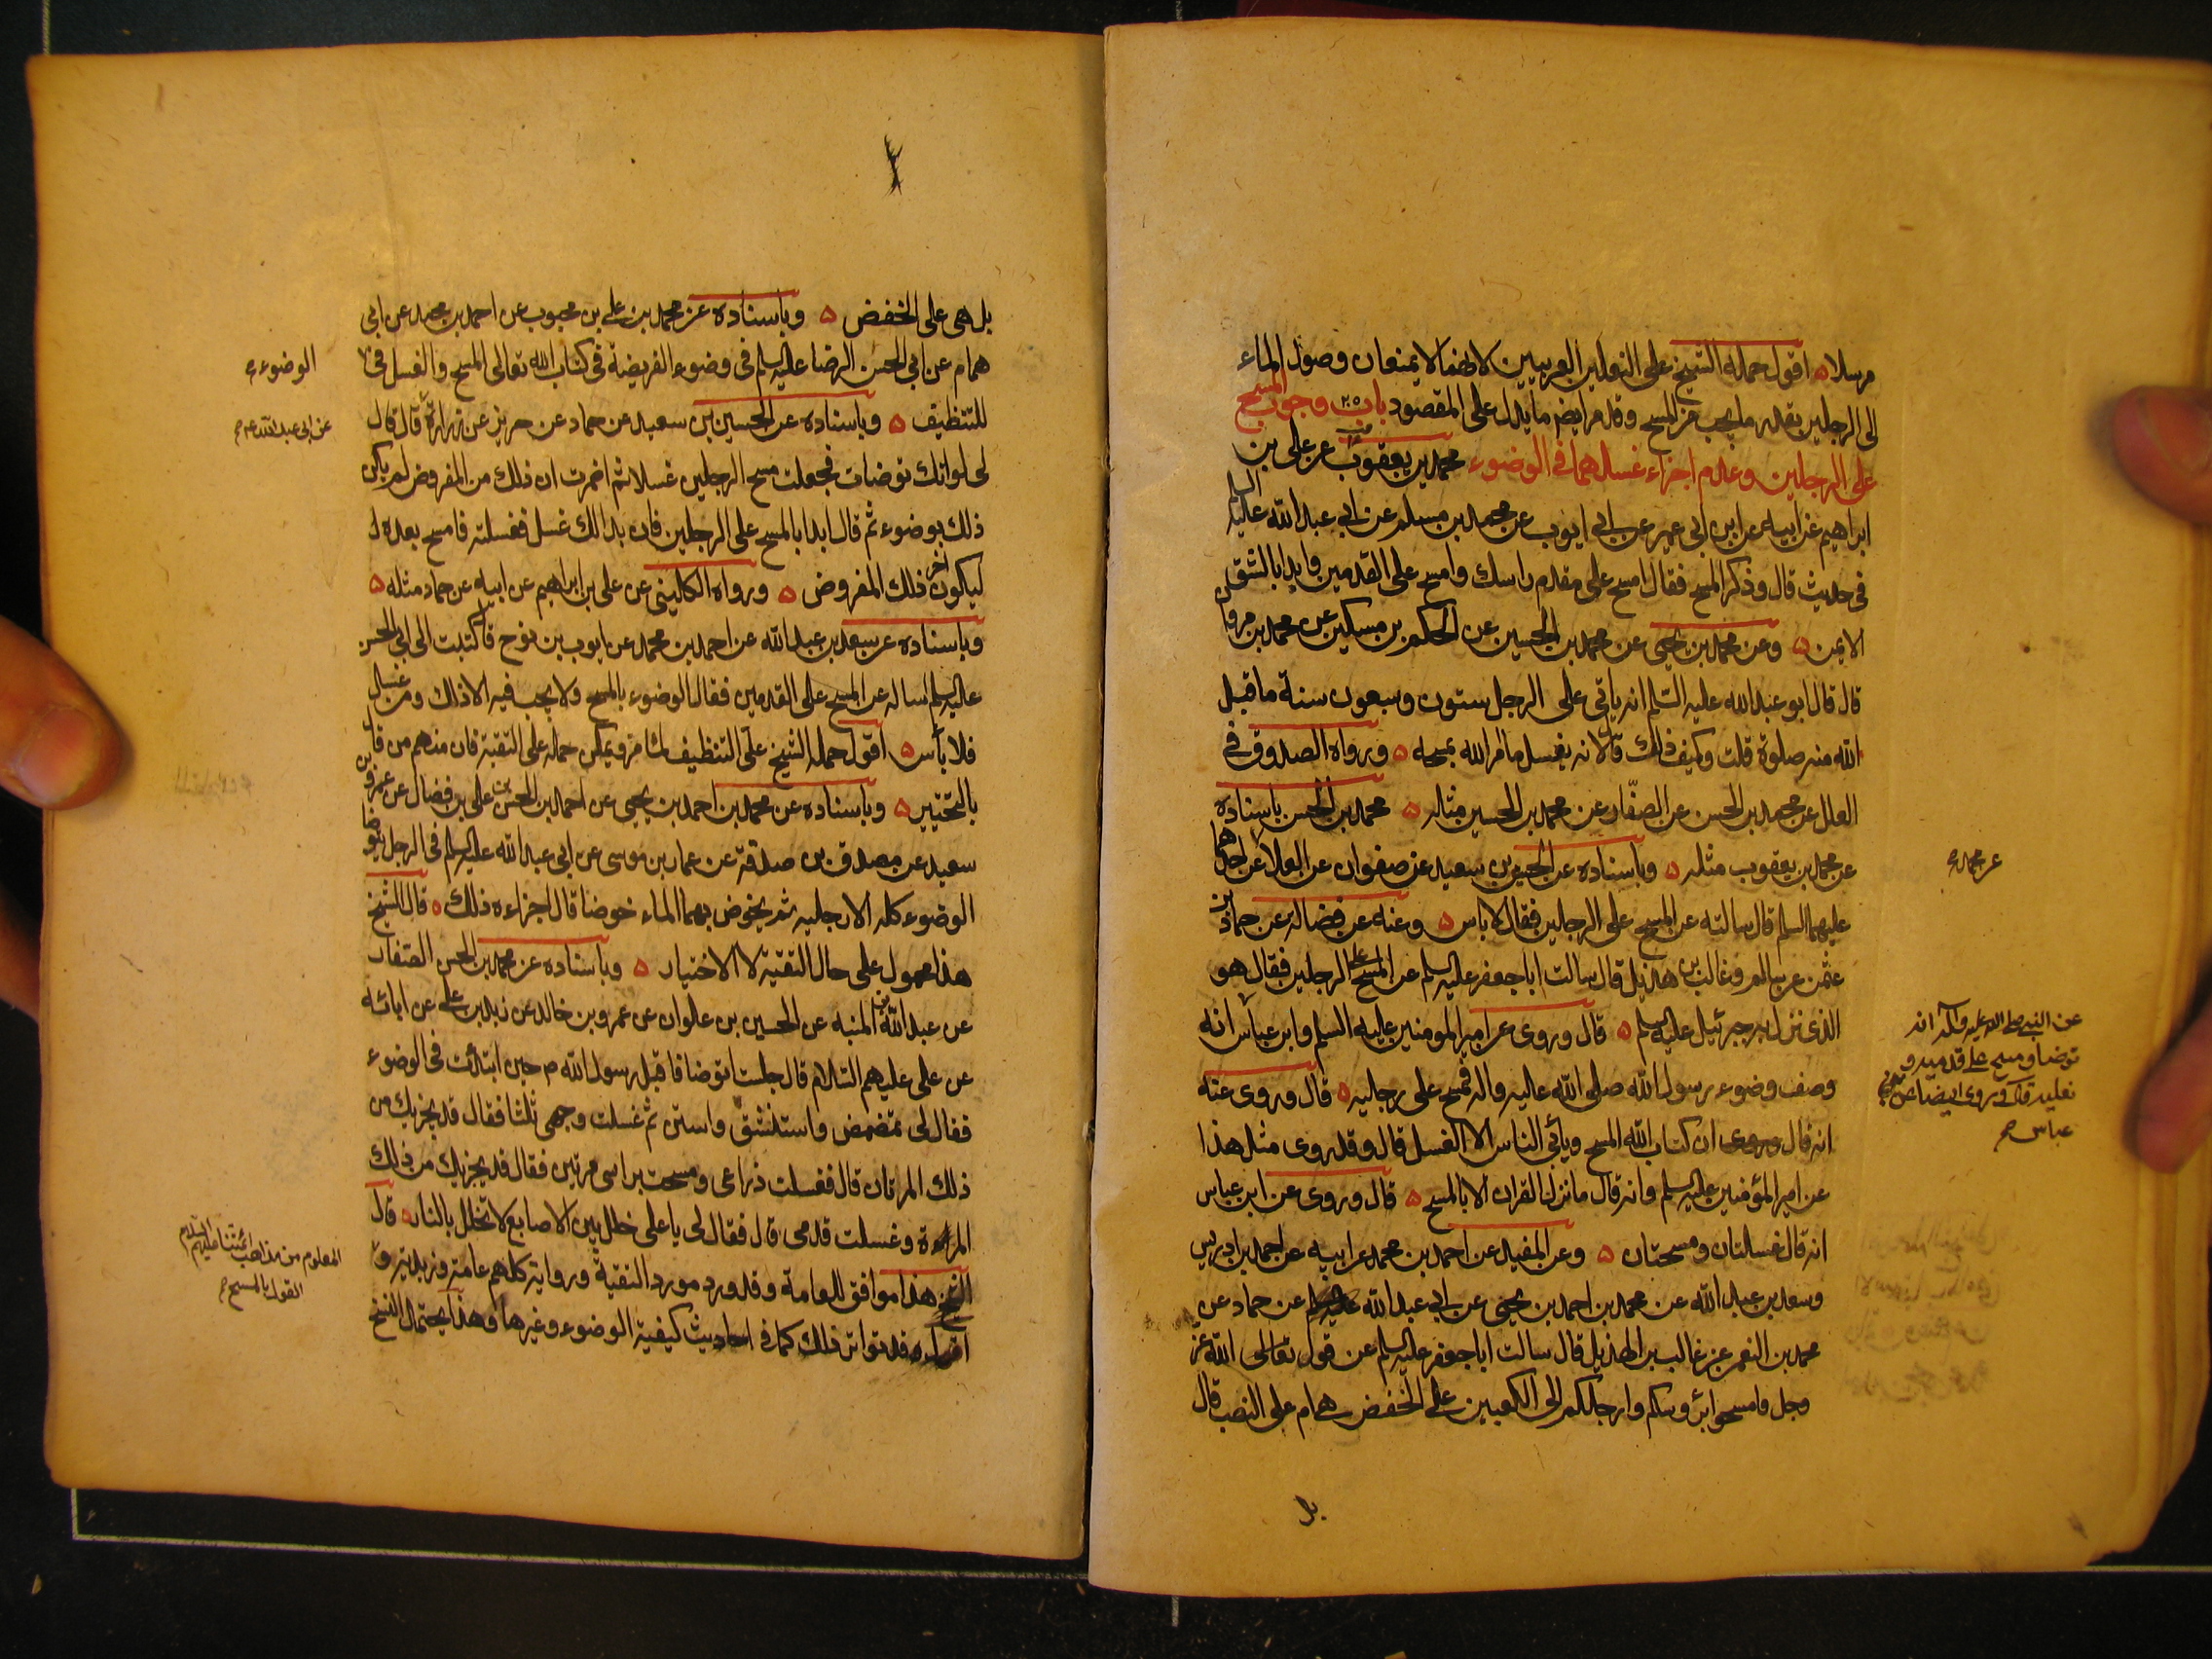 مرسلا ه اقول حمله الشيخ على النعلين العربيين لانهما لا يمنعان وصول الماء
الى الرجلين بقدر ما يجب من المسح وقد مر ايضا ما يدل على المقصود باب ٢٥ وجوب المسح
على الرجلين وعدم اجزاء غسلهما فى الوضوء محمد بن يعقوب عن على بن
ابراهيم عن ابيه عن ابن ابى عمير عن ابى ايوب عن محمد بن مسلم عن ابى عبد الله عليه السلم
فى حديث قال وذكر المسح فقال امسح على مقدم راسك وامسح على القدمين وابدا بالشق
الايمن ه وعن محمد بن يحيى عن محمد بن الحسين عن الحكم بن مسكين عن محمد بن مروان
قال قال ابو عبد الله عليه السلم انه ياتى على الرجل ستون وسبعون سنة ما قبل
الله منه صلوة قلت وكيف ذلك قال لانه يغسل ما امر الله بمسحه ه ورواه الصدوق فى
العلل عن محمد بن الحسن عن الصفّار عن محمد بن الحسين مثله ه محمد بن الحسن باسناده
عن محمد بن يعقوب مثله ه وباسناده عن الحسين بن سعيد عن صفوان عن العلا عن احدهما
عليهما السلم قال سالته عن المسح على الرجلين فقال لا باس ه وعنه عن فضاله عن حماد بن
عثمن عن سالم وغالب بن هذيل قال سالت ابا جعفر عليه السلم عن المسح على الرجلين فقال هو
الذى نزل به جبرئيل عليه السلم ه قال وروى عن امير المومنين عليه السلم وابن عباس انه
وصف وضوء رسول الله صلى الله عليه واله فمسح على رجليه ه قال وروى عنه
انه قال وروى ان كتاب الله المسح ويأبى الناس الا الغسل قال وقد روى مثل هذا
عن امير المؤمنين عليه السلم وانه قال ما نزل القران الا بالمسح ه قال وروى عن ابن عباس
انه قال غسلتان ومسحتان ه وعن المفيد عن احمد بن محمد عن ابيه عن احمد بن ادريس
وسعد بن عبد الله عن محمد بن احمد بن يحيى عن ابى عبد الله عن حماد عن
محمد بن النعمن عن غالب بن الهذيل قال سالت ابا جعفر عليه السلم عن قول تعالى الله عز
وجل وامسحوا برؤسكم وارجلكم الى الكعبين على الخفض هى ام على النصب قال
بل
عن محمد
عن النبى صلى الله عليه وآله انه
توضا ومسح على قدميه و
نعليه قال وروى ايضا عن ابن
عباس صح
بل هى على الخفض ه وباسناده عن محمد بن على بن محبوب عن احمد بن محمد عن ابى
همام عن ابى الحسن الرضا عليه السلم فى وضوء الفريضة فى كتاب الله تعالى المسح والغسل فى
للتنظيف ه وباسناده عن الحسين بن سعيد عن حماد عن حريز عن زرارة قال قال
لى لو انك توضات فجعلت مسح الرجلين غسلا ثم اضمرت ان ذلك من المفروض لم يكن
ذلك بوضوء ثم قال ابدا بالمسح على الرجلين فان بدا لك غسل فغسلته فامسح بعده ل
ليكون آخر ذلك المفروض ه ورواه الكلينى عن على بن ابراهيم عن ابيه عن حماد مثله ه
وباسناده عن سعد بن عبد الله عن احمد بن محمد عن ايوب بن نوح قا كتبت الى ابى الحسن
عليه السلم اساله عن المسح على القدمين فقال الوضوء بالمسح ولا يجب فيه الا ذلك ومن غسل
فلا بأس ه اقول حمله الشيخ على التنظيف لما مر ويمكن حمله على التقية فان منهم من قال
بالتخيير ه وباسناده عن محمد بن احمد بن يحيى عن احمد بن الحسن بن على بن فضال عن عمرو بن
سعيد عن مصدق بن صدقة عن عمار بن موسى عن ابى عبد الله عليه السلم فى الرجل يتوضا
الوضوء كله الا رجليه ثم يخوض بهما الماء خوضا قال اجزاءه ذلك ه قال الشيخ
هذا محمول على حال التقية لا الاختيار ه وباسناده عن محمد بن الحسن الصفار
عن عبد الله بن المنبه عن الحسين بن علوان عن عمرو بن خالد عن زيد بن على عن ابائه
عن على عليهم السلام قال جلست اتوضا فاقبل رسول الله ص حين ابتدئت فى الوضوء
فقال لى تمضمض واستنشق واستن ثم غسلت وجهى ثلثا فقال قد يجزيك من
ذلك المرتان قال فغسلت ذراعى ومسحت براسى مرتين فقال قد يجزيك من ذلك
المرة وغسلت قدمى قال فقال لى يا على خلل بين الاصابع لا تخلل بالنار ه قال
الشيخ هذا موافق للعامة وقد ورد مورد التقية ورواته كلهم عامة وزيدية و
قد تواتر ذلك كما فى احاديث كيفية الوضوء وغيرها وهذا يحتمل النسخ
الوضوء
عن ابى عبد الله ع
المعلوم من مذاهب ائمتنا عليهم السلام
القول بالمسح